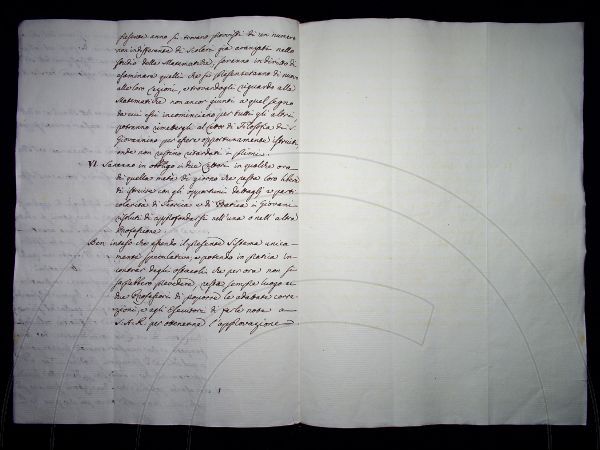 presente anno si trovano provvisti di un numero
non indifferente di Scolari già avanzati nello
studio delle Matematiche, saranno in diritto di
esaminare quelli che si presenteranno di nuovo
alle loro Lezioni, e trovandogli riguardo alle
Matematiche non ancor giunti a quel segno
da cui essi incominciano per tutti gli altri,
potranno rimetergli al Lettor di Filosofia di S.
Giovannino per essere opportunamente istruiti
onde non restino ritardati i primi.
VI. Saranno in obbligo i due Lettori in qualche ora
di quella metà di giorno che resta loro libera
di istruire con gli opportuni dettagli e parti
colarità di Teorica e di Pratica i Giovani
risoluti di approfondarsi nell'una o nell'altra
Professione.
Ben inteso che essendo il presente Sistema unica-
mente speculativo, e potendo in pratica in-
contrar degli ostacoli che per ora non si
saprebbero prevedere, resta sempre luogo ai
due Professori di proporre le adattate corre-
zioni, e agli Esecutori di farle note a
S. A. R. per ottenerne l'approvazione